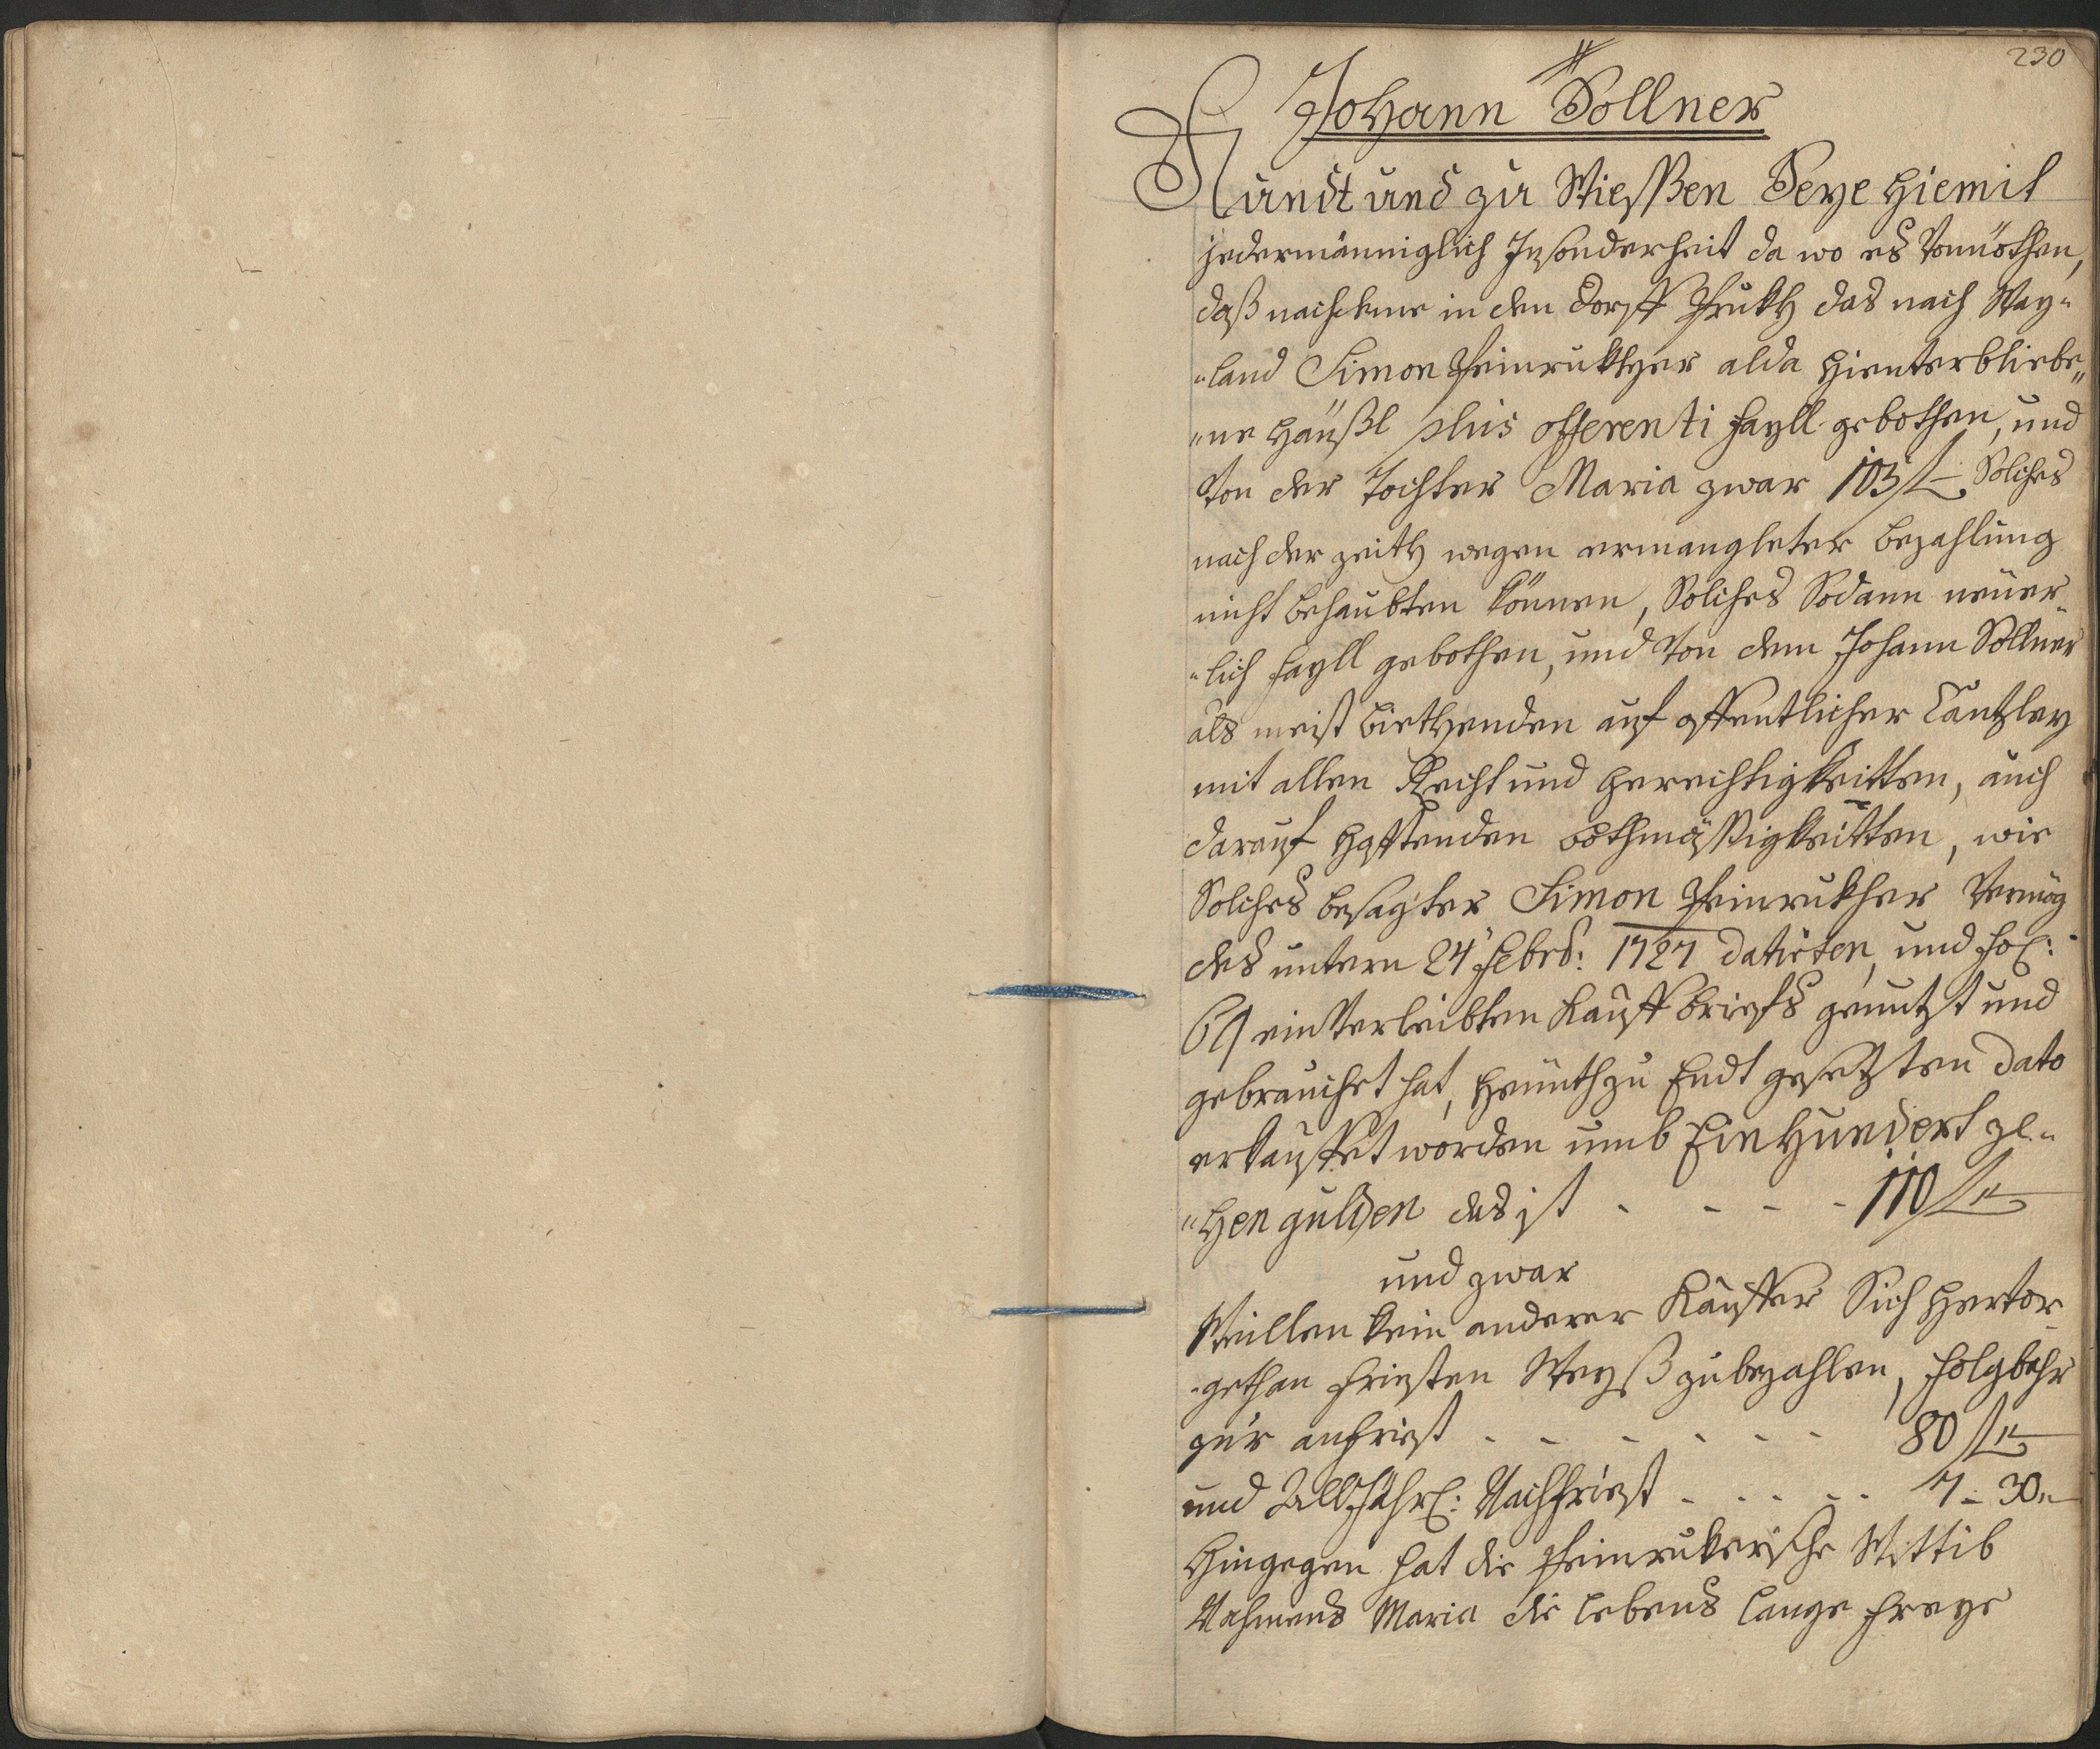 230
Johann Sollner
Kundt und zu Wießen Seye hiemit
jedermänniglich Insonderheit da wo es Vonnöthen,
daß nachdeme in den Dorff Prukh das nach Way-
-land Simon Heinrukher alda hinterbliebe„
„ne häußl plus offerenti fayll gebothen, und
Von der Tochter Maria zwar 103 f Solches
nach der zeith wegen ermangleter bezahlung
nicht behaubten können, Solches Sodann neüer-
-lich fayll gebothen, und Von dem Johann Sollner
als meist biethenden auf offentlicher Cantzley
mit allen Recht und gerechtigkeitten, auch
darauf hafftenden bothmässigkeitten, wie
Solches besagter Simon Heinrukher Vermög
des untern 24 Febr: 1727 datirten, und fol:
69 ein Verleibten Kauff briefs genutzt und
gebrauchet hat, heünth zu Endt gesetzten dato
erkauffet worden umb Ein hundert ze-
„hen gulden das ist - - - - 110 f
und zwar
Weillen kein anderer Kauffer Sich hervor
-gethan friesten Weyß zu bezahlen, folgbahr
zur anfriest - - - - - - 80 f
und Alljährl: Nachfriest - - - - 7 - 30„
Hingegen hat die Heinrukerische Wittib
Nahmens Maria die lebens lange freye